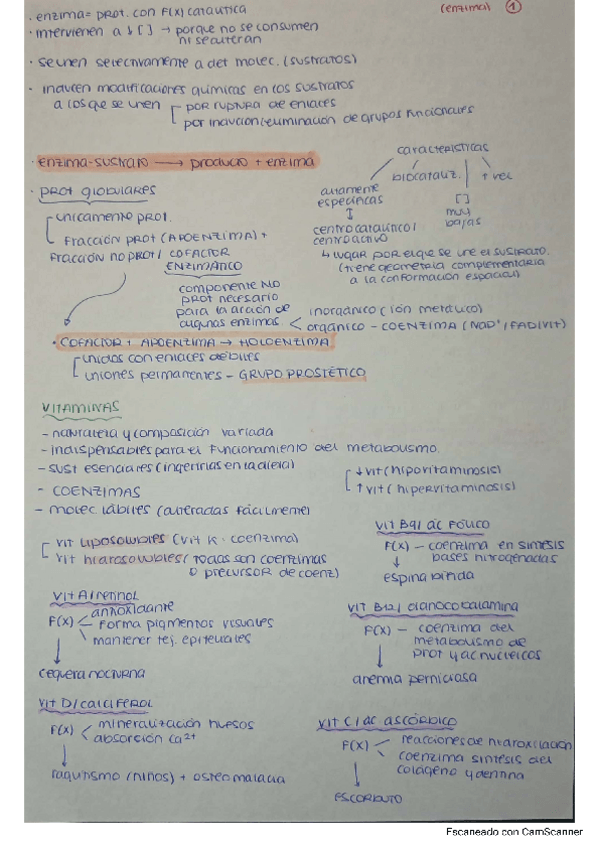 (enzima) 1
· enzima = PROT. CON F(X) CATALÍTICA
· intervienen a ↓ [ ] → porque no se consumen
ni se alteran
· se unen selectivamente a det molec. (sustratos)
· inducen modificaciones químicas en los sustratos
a los que se unen
por ruptura de enlaces
por inducción/eliminación de grupos funcionales
· enzima-sustrato → producto + enzima
características
altamente específicas
biocataliz.
↑ vel
[ ] muy bajas
centro catalítico/
centro activo
↳ lugar por el que se une el sustrato.
(tiene geometría complementaria
a la conformación espacial)
· PROT GLOBULARES
únicamente prot.
fracción prot (APOENZIMA) +
fracción no prot / COFACTOR
ENZIMÁTICO
componente NO
prot necesario
para la acción de
algunas enzimas
inorgánico (ión metálico)
orgánico - COENZIMA (NAD⁺/FAD/VIT)
· COFACTOR + APOENZIMA → HOLOENZIMA
unidos con enlaces débiles
uniones permanentes - GRUPO PROSTÉTICO
VITAMINAS
- naturaleza y composición variada
- indispensables para el funcionamiento del metabolismo.
- sust esenciales (ingerirlas en la dieta)
- COENZIMAS
- molec lábiles (alteradas fácilmente)
↓ vit (hipovitaminosis)
↑ vit (hipervitaminosis)
vit liposolubles (vit K · coenzima)
vit hidrosolubles (todas son coenzimas
o precursor de coenz)
VIT B9/ ác FÓLICO
F(X) - coenzima en síntesis
bases nitrogenadas
↓
espina bífida
VIT A/retinol
F(X)
antioxidante
forma pigmentos visuales
mantener tej. epiteliales
↓
ceguera nocturna
VIT B12/ cianocobalamina
F(X) - coenzima del
metabolismo de
prot y ác nucleicos
↓
anemia perniciosa
VIT D/calciferol
F(X)
mineralización huesos
absorción Ca²⁺
↓
raquitismo (niños) + osteomalacia
VIT C/ ác ascórbico
F(X)
reacciones de hidroxilación
coenzima síntesis del
colágeno y dentina
↓
ESCORBUTO
Escaneado con CamScanner